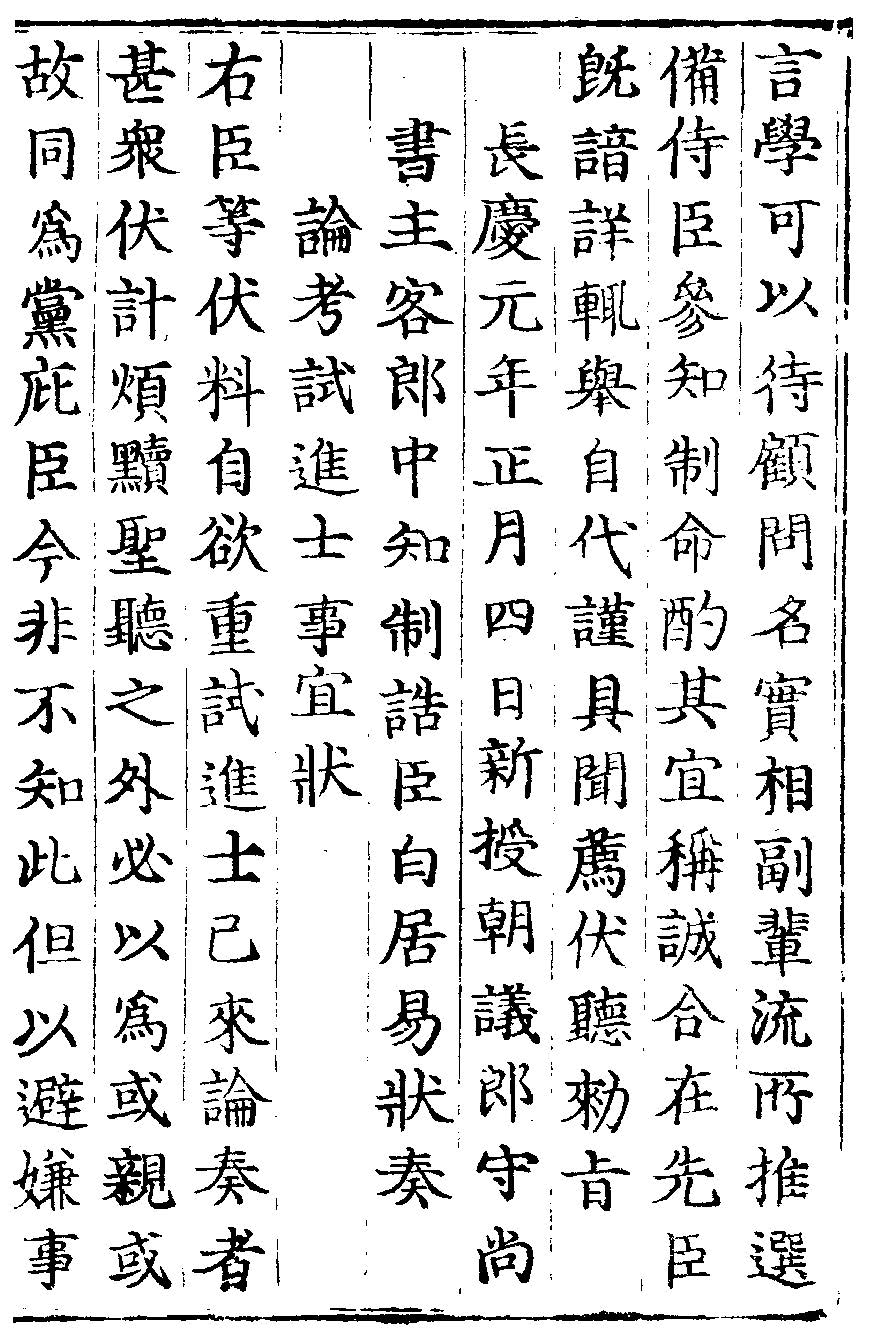 言學可以待顧問名實相副輩流所推選
備侍臣叅知制命酌其宜稱誠合在先臣
旣諳詳輙舉自代謹具聞薦伏聽勑旨
長慶元年正月四日新授朝議郎守尚
書主客郎中知制誥臣白居易狀奏
論考試進士事宜狀
右臣等伏料自欲重試進士已來論奏者
甚衆伏計煩黷聖聽之外必以爲或親或
故同爲黨庇臣今非不知此但以避嫌事